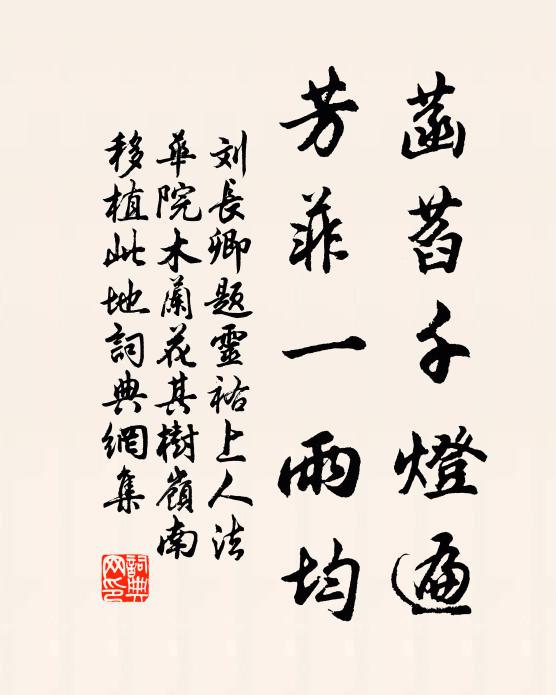 菡萏千燈遍
芳菲一雨均
刘長卿題靈祐上人法
華院木蘭花其樹嶺南
移植此地詞典網集
詞典网印